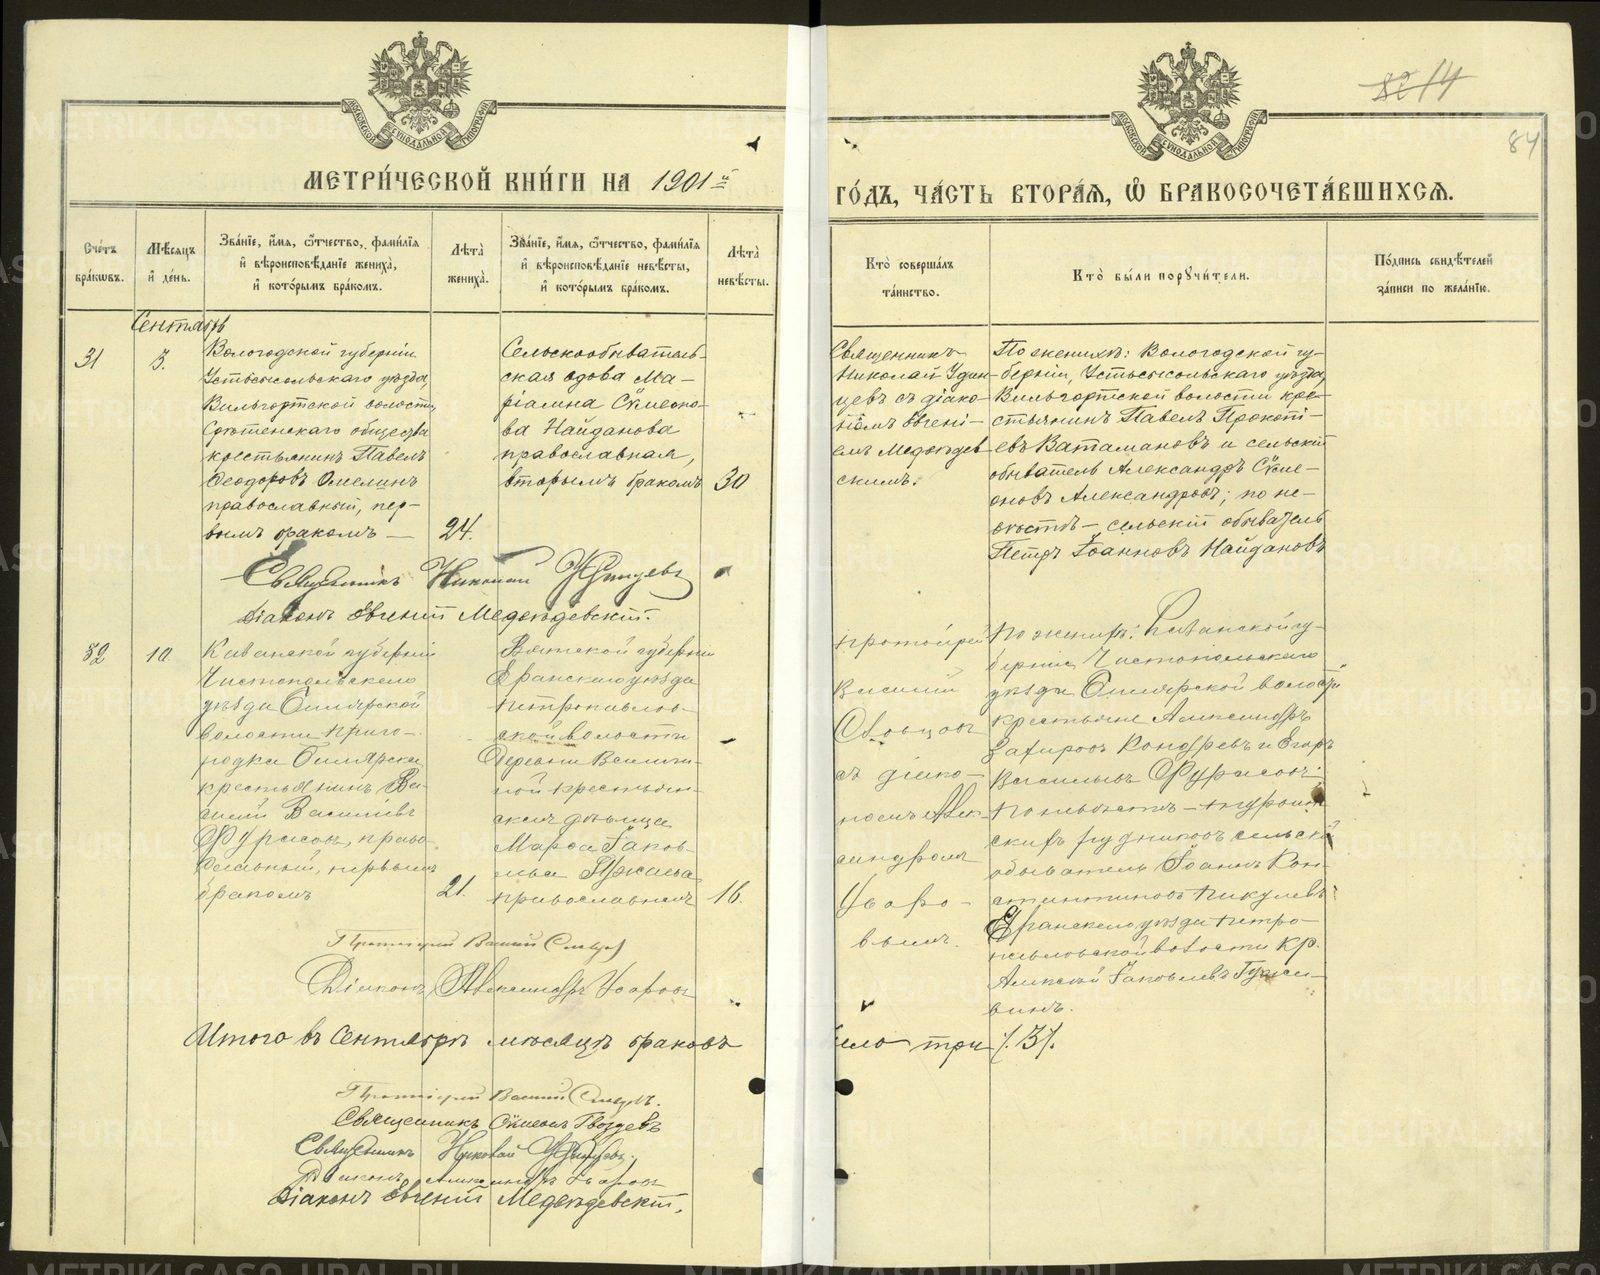 МЕТРИ́ЧЕСКОЙ КНИ́ГИ НА 1901й
ГО́ДЪ, ЧА́СТЬ ВТОРА́Я, Ѡ БРАКОСОЧЕТА́ВШИХСЯ.
84
МОСКОВСКОЙ СУНОДАЛЬНОЙ ТИПОГРАФІИ
МОСКОВСКОЙ СУНОДАЛЬНОЙ ТИПОГРАФІИ
Сче́тъ бра́ковъ.
Мѣ́сяцъ и де́нь.
Зва́ніе, и́мя, ѻ́тчество, фами́лія и вѣроисповѣ́даніе жениха̀, и кото́рымъ бра́комъ.
Лѣта̀ жениха̀.
Зва́ніе, и́мя, ѻ́тчество, фами́лія и вѣроисповѣ́даніе невѣ́сты, и кото́рымъ бра́комъ.
Лѣта̀ невѣ́сты.
Кто̀ соверша́лъ та́инство.
Кто̀ бы́ли поручи́тели.
По́дпись свидѣ́телей за́писи по жела́нію.
Сентябрь
31
5.
Вологодской губерніи
Устьсысольскаго уѣзда,
Вильгортской волости,
Срѣтенскаго общества
крестьянинъ Павелъ
Ѳеодоровъ Омелинъ
православный, пер-
вымъ бракомъ —
24.
Сельскообыватель-
ская вдова Ма-
ріамна Сѵмеоно-
ва Найданова
православная,
вторымъ бракомъ
30
Священникъ
Николай Удин-
цевъ съ діако-
номъ Евгені-
емъ Медвѣдев-
скимъ.
По женихѣ: Вологодской гу-
берніи, Устьсысольскаго уѣзда,
Вильгортской волости кре-
стьянинъ Павелъ Прокопі-
евъ Ватамановъ и сельскій
обыватель Александръ Сѵме-
оновъ Александровъ; по не-
вѣстѣ — сельскій обыватель
Петръ Іоанновъ Найдановъ
Священникъ Николай Удинцевъ
Діаконъ Евгеній Медвѣдевскій.
32
10
Казанской губерніи
Чистопольскаго
уѣзда Билярской
волости приго-
родка Билярска
крестьянинъ Ва-
силій Василіевъ
Фурасовъ, право
славный, первымъ
бракомъ
21.
Вятской губерніи
Яранскаго уѣзда
Петропавлов-
ской волости
деревни
крестьян-
ская дѣвица
Марѳа Іаков-
лева
православная
16.
Протоіерей
Василій
Словцовъ
съ діако-
номъ Алек-
сандромъ
Уваро-
вымъ.
По женихѣ: Казанской гу-
берніи Чистопольскаго
уѣзда Билярской волости
крестьяне Александръ
Захаровъ Кондревъ и Егоръ
Васильевъ Фурасовъ
По невѣстѣ — Турьин-
скихъ рудниковъ сельскій
обыватель Іоаннъ Кон-
стантиновъ Пикулевъ
Яранскаго уѣзда Петро-
павловской волости кр.
Алексѣй Іаковлевъ
Протоіерей Василій Словцовъ
Діаконъ Александръ Уваровъ
Итого въ Сентябрѣ мѣсяцѣ браковъ
было три /.3/.
Протоіерей Василій Словцовъ.
Священникъ Сѵмеонъ Гвоздевъ
Священникъ Николай Удинцевъ.
Діаконъ Александръ Уваровъ
Діаконъ Евгеній Медвѣдевскій.